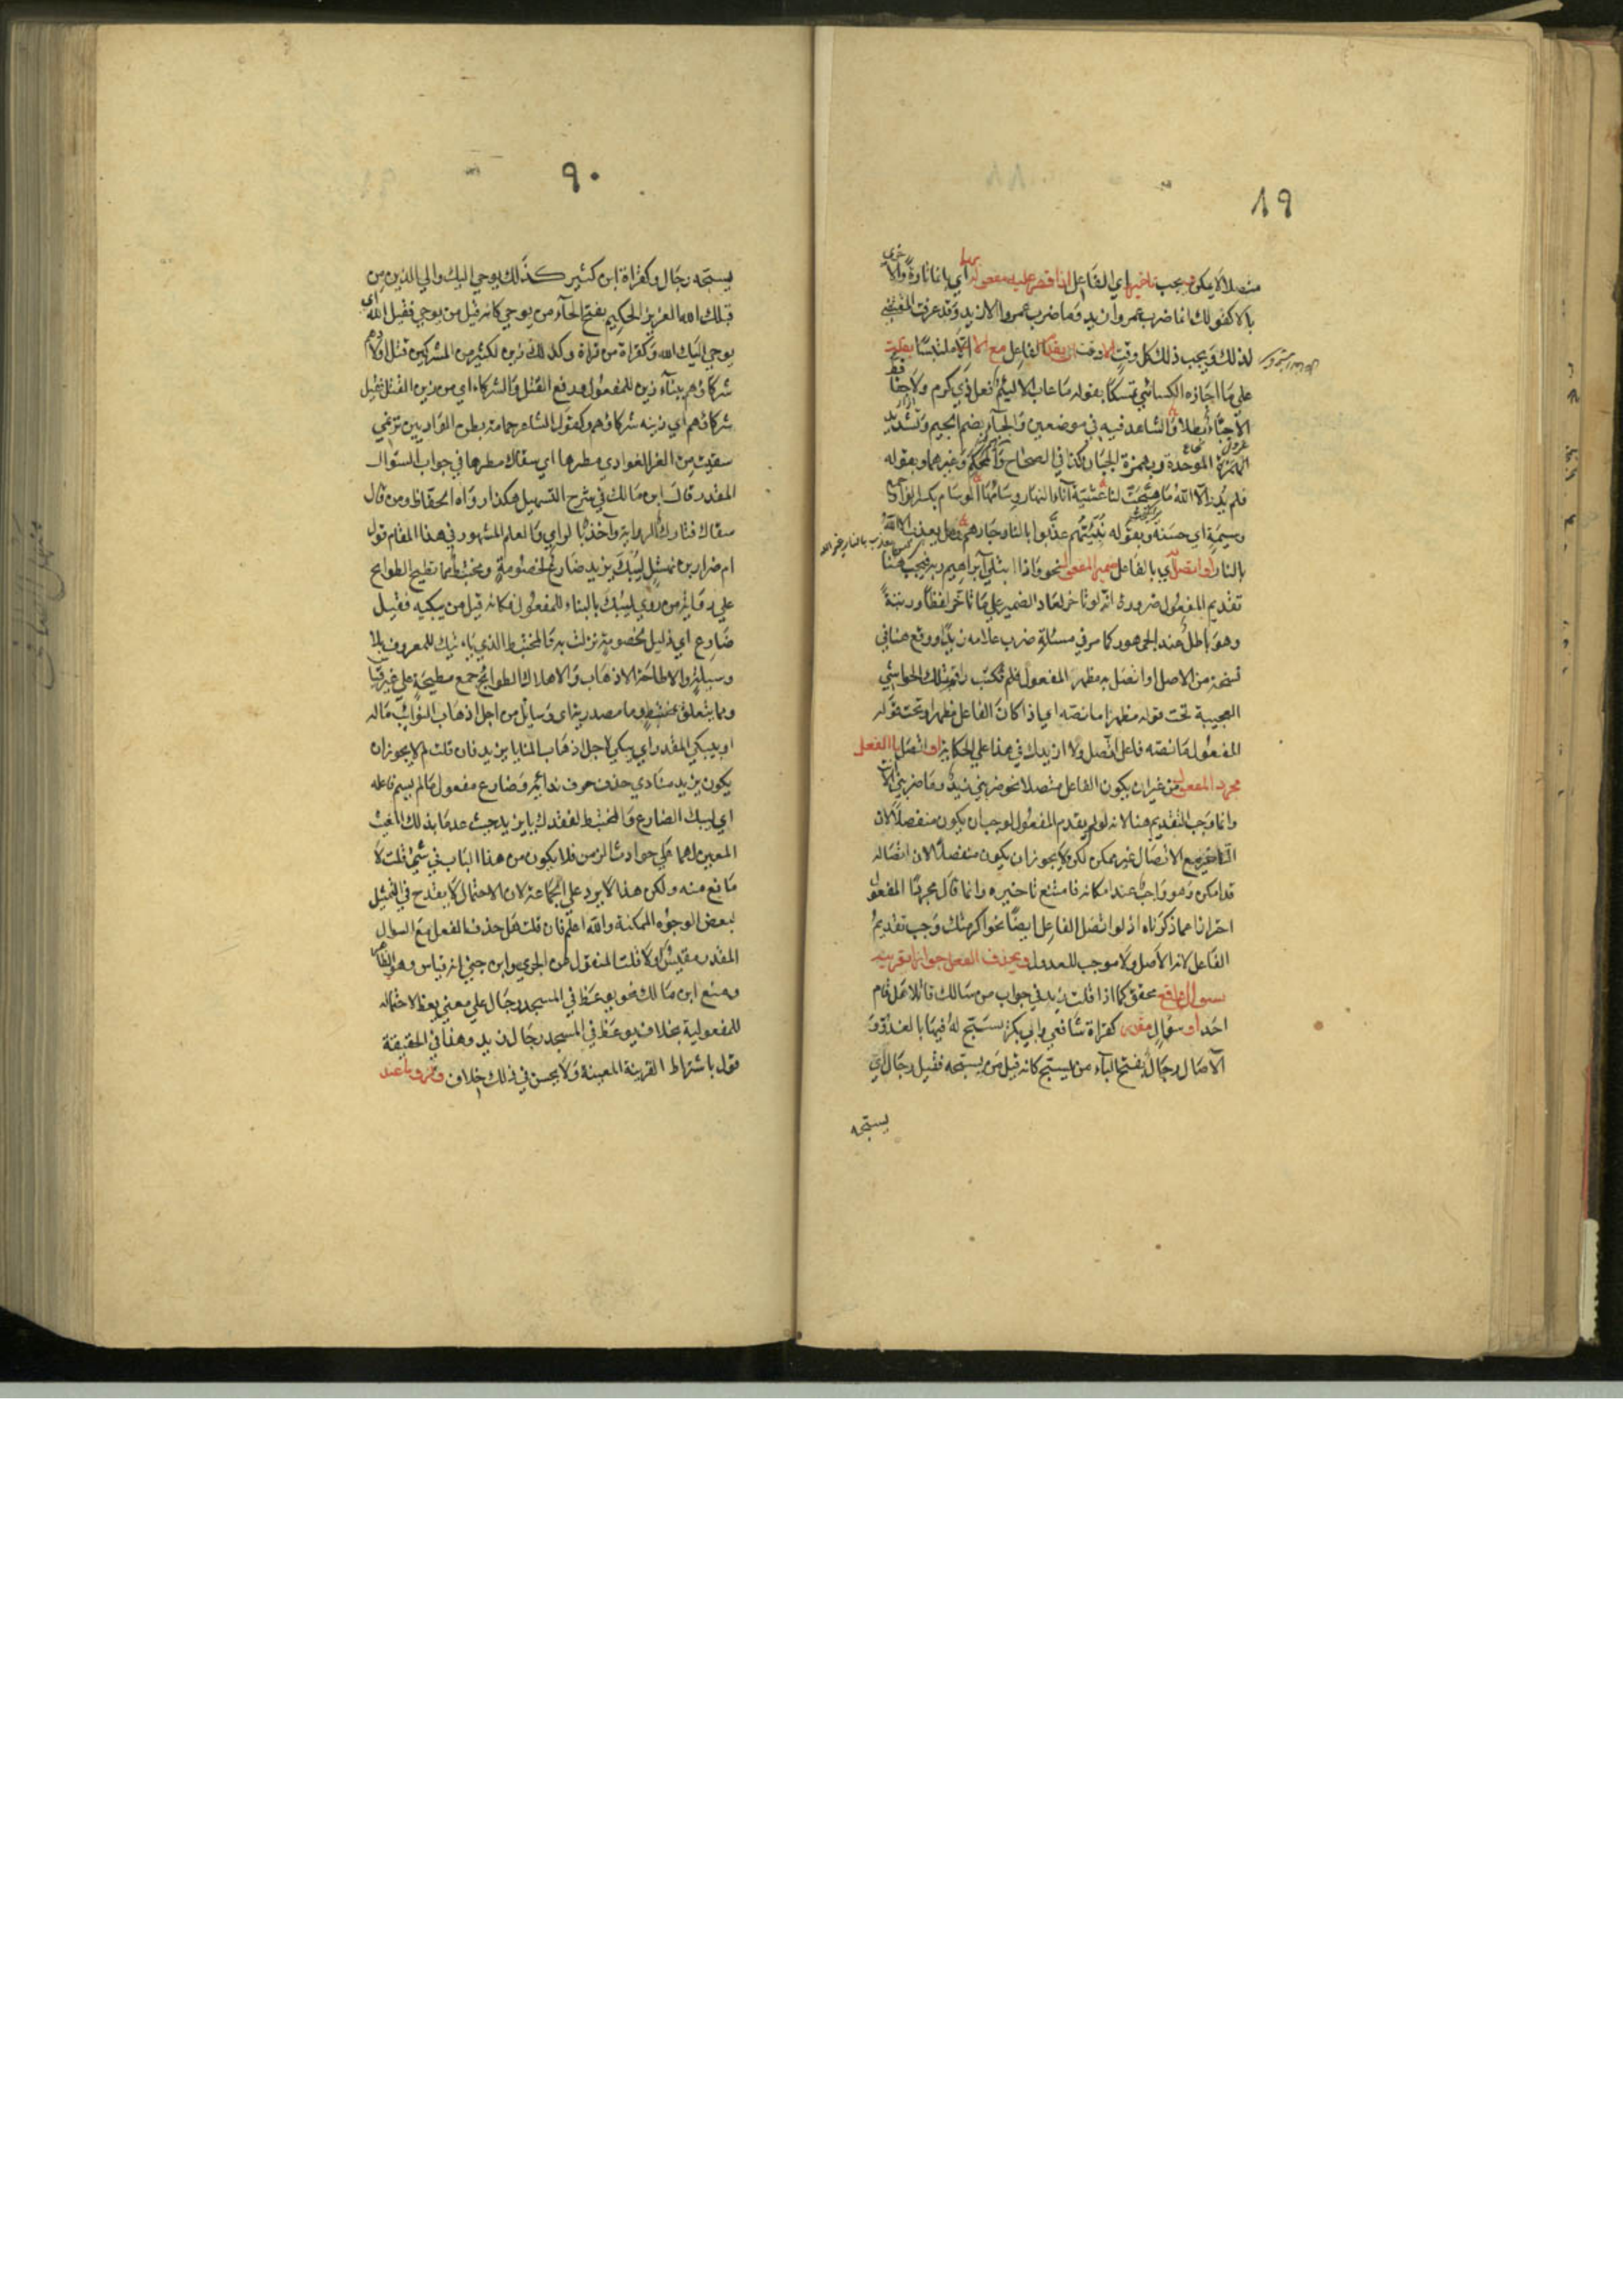 ٨٩
منصلا لا يمكن ويجب تاخيرها اي الفاعل اذا قصر عليه مفعوله اي بانما تارة والا
بالا كقولك انما ضرب عمروا زيد وما ضرب عمروا الا زيد وقد عرفت المقتضي
لذلك ويجب ذلك كل وقت الا وقت ان يقدم الفاعل مع الا
علي ما اجازه الكسائي تمسكا بقوله ما عاب الا لئيم فعل ذي كرم ولا جفا
الا جبّاء بطلا والشاهد فيه في موضعين والجبآء بضم الجيم وتشديد
الموحدة وبهمزة الجبان كذا في الصحاح والمحكم وغيرهما وبقوله
فلم يدر الا الله ما هيّجت لنا عشية آناء الديار وشامها الوسام بكسر الواو جمع
وسيمة اي حسنة وبقوله نبّئتهم عذّبوا بالنار جارهم وهل يعذب الا الله
بالنار او اتصل اي بالفاعل ضمير المفعول نحو واذ ابتلي ابراهيم ربه فيجب هنا
تقديم المفعول ضرورة انه لو تاخر لعاد الضمير علي ما تاخر لفظا ورتبة
وهو باطل عند الجمهور كما مر في مسئلة ضرب غلامه زيدا ووقع هنا في
نسخة من الاصل او اتصل به مظهر المفعول فلم تكتب
العجيبة تحت قوله مظهرا ما نصه اي اذا كان الفاعل مظهرا وتحت قوله
المفعول ما نصه فاعل اتصل ولا ازيدك في هذا علي الحكاية او اتصل بالفعل
مجرد المفعول من غير ان يكون الفاعل متصلا نحو ضربني زيد وما ضربني الا
وانما وجب التقديم هنا لانه لو لم يقدم المفعول لوجب ان يكون منفصلا لان
التاخير مع الاتصال غير ممكن لكن لا يجوز ان يكون منفصلا لان اتصاله
قد امكن وهو واجب عند امكانه فامتنع تاخيره وانما قال مجرد المفعول
احترازا عما ذكرناه اذ لو اتصل الفاعل ايضا نحو اكرمتك وجب تقديم
الفاعل لانه الاصل ولا موجب للعدول ويحذف الفعل جوازا بقرينة
سوال واقع محقق كما اذا قلت زيد في جواب من سالك قائلا هل قام
احد او سوال مقدر كقراة شافعي وابي بكر يسبّح له فيها بالغدوّ و
الآصال رجال بفتح البآء من يسبّح كانه قيل من يسبّحه فقيل رجال اي
يسبّحه
٩٠
يسبّحه رجال وكقراة ابن كثير كذلك يوحي اليك والي الذين من
قبلك الله العزيز الحكيم بفتح الحآء من يوحي كانه قيل من يوحي فقيل الله اي
يوحي اليك الله وكقراة من قراة وكذلك زين لكثير من المشركين قتل اولادهم
شركاؤهم ببنآء زين للمفعول ورفع القتل والشركاء اي من زين القتل فقيل
شركاؤهم اي زينه شركاؤهم وكقول الشاعر حمامة بطن الواديين ترنمي
سقيت من الغر الغوادي مطيرها اي سقاك مطيرها في جواب السؤال
المقدر قال ابن مالك في شرح التسهيل هكذا رواه الحفاظ ومن قال
سقاك فتارك للرواية وآخذ بالراي والعلم المشهور في هذا المقام قول
ام ضرار بن نهشل ليبك يزيد ضارع لخصومة ومختبط مما تطيح الطوايح
علي رواية من روي ليبك بالبناء للمفعول فكانه قيل من يبكيه فقيل
ضارع اي ذليل لخصومة نزلت به والمختبط الذي ياتيك للمعروف بلا
وسيلة والاطاحة الاذهاب والاهلاك الطوايح جمع مطيحة علي غير قياس
ومما يتعلق بمختبط وما مصدرية اي وسايل من اجل اذهاب النوائب ماله
او بيبكي المقدر اي يبكي لاجل اذهاب المنايا يزيد فان قلت لم لا يجوز ان
يكون يزيد منادي حذف حرف ندائه وضارع مفعول ما لم يسم فاعله
اي ليبك الضارع والمختبط لفقدك يا يزيد حيث عدما بذلك المغيث
المعين لهما علي حوادث الزمن فلا يكون من هذا الباب في شي قلت لا
مانع منه ولكن هذا لا يرد علي الجماعة لان الاحتمال لا يقدح في التمثيل
لبعض الوجوه الممكنة والله اعلم فان قلت هل حذف الفعل مع السوال
المقدر مقيس او لا قلت المنقول عن الجرمي وابن جني انه قياس وهو الظاهر
ومنع ابن مالك نحو يوعظ في المسجد رجال علي معني يعظ لاحتماله
للمفعولية بخلاف يوعظ في المسجد رجال زيد وهذا في الحقيقة
قول باشتراط القرينة المعينة ولا يحسن في ذلك خلاف ووجوبا عند